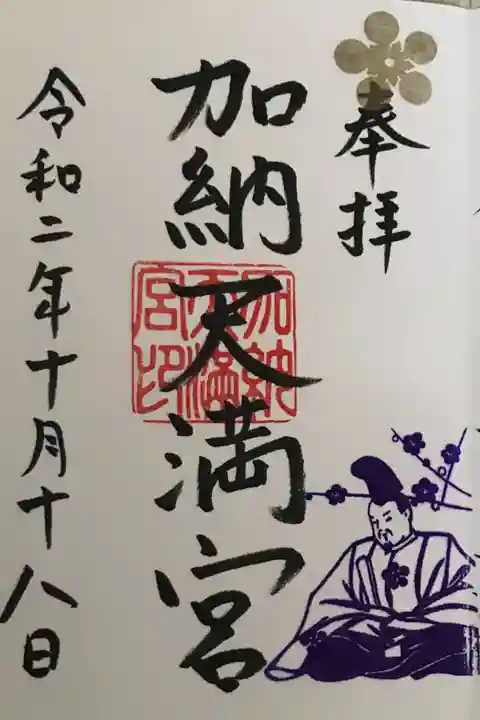 奉拝
加納天満宮
加納天満宮印
令和二年十月十八日